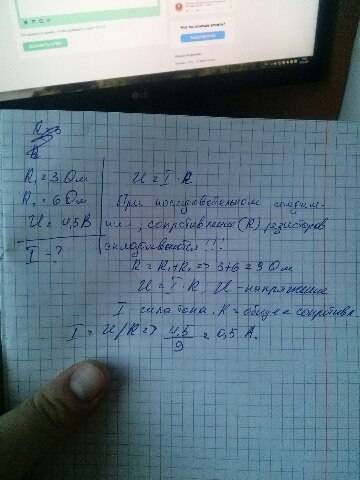 R₁ = 3 Ом
R₂ = 6 Ом
U = 4,5 В
I - ?
U = I · R
При последовательном соедине-
нии, сопротивление (R) резисторов
складываются!!:
R = R₁ + R₂ => 3+6 = 9 Ом
U = I · R, U - напряжение
I сила тока. R = общее сопротивл.
I = U/R => 4,5/9 = 0,5 А.